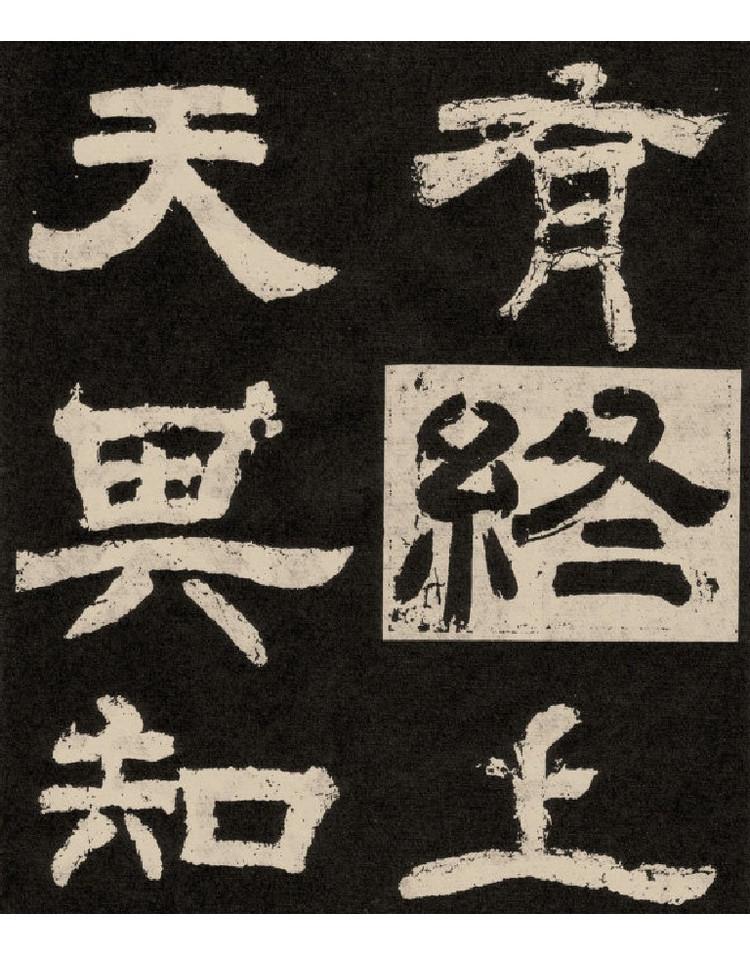 有終上
天畀知